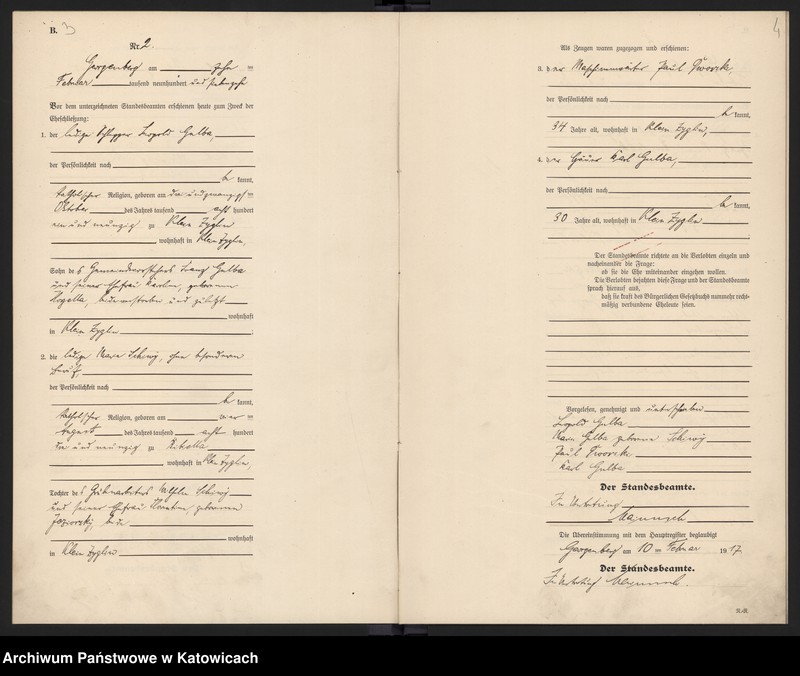 B. 3
Nr. 2.
am zehn
Februar tausend neunhundert und siebzehn
Vor dem unterzeichneten Standesbeamten erschienen heute zum Zweck der
Eheschließung:
1. der ledige Schlepper Leopold Gulba,
der Persönlichkeit nach
be kannt,
katholischer Religion, geboren am
Oktober des Jahres tausend acht hundert
ein und neunzig zu Klein Zyglin
wohnhaft in Klein Zyglin,
Sohn des Gemeindevorstehers Franz Gulba
und seiner Ehefrau Karoline, geborenen
beide verstorben und zuletzt
wohnhaft
in Klein Zyglin
2. die ledige Marie, ohne besonderen
Beruf,
der Persönlichkeit nach
be kannt,
katholischer Religion, geboren am
August des Jahres tausend acht hundert
und neunzig zu
wohnhaft in Klein Zyglin,
Tochter des Grubenarbeiters
und seiner Ehefrau geborenen
beide
wohnhaft
in Klein Zyglin
4
Als Zeugen waren zugezogen und erschienen:
3. der Maschinenwärter Paul
der Persönlichkeit nach
be kannt,
34 Jahre alt, wohnhaft in Klein Zyglin,
4. der Häuer Karl Gulba,
der Persönlichkeit nach
be kannt,
30 Jahre alt, wohnhaft in Klein Zyglin
Der Standesbeamte richtete an die Verlobten einzeln und
nacheinander die Frage:
ob sie die Ehe miteinander eingehen wollen.
Die Verlobten bejahten diese Frage und der Standesbeamte
sprach hierauf aus,
daß sie kraft des Bürgerlichen Gesetzbuchs nunmehr recht-
mäßig verbundene Eheleute seien.
Vorgelesen, genehmigt und unterschrieben
Leopold Gulba
Marie Gulba geborene
Paul
Karl Gulba
Der Standesbeamte.
In Vertretung
Die Übereinstimmung mit dem Hauptregister beglaubigt
am 10 ten Februar 1917
Der Standesbeamte.
In Vertretung
Archiwum Państwowe w Katowicach